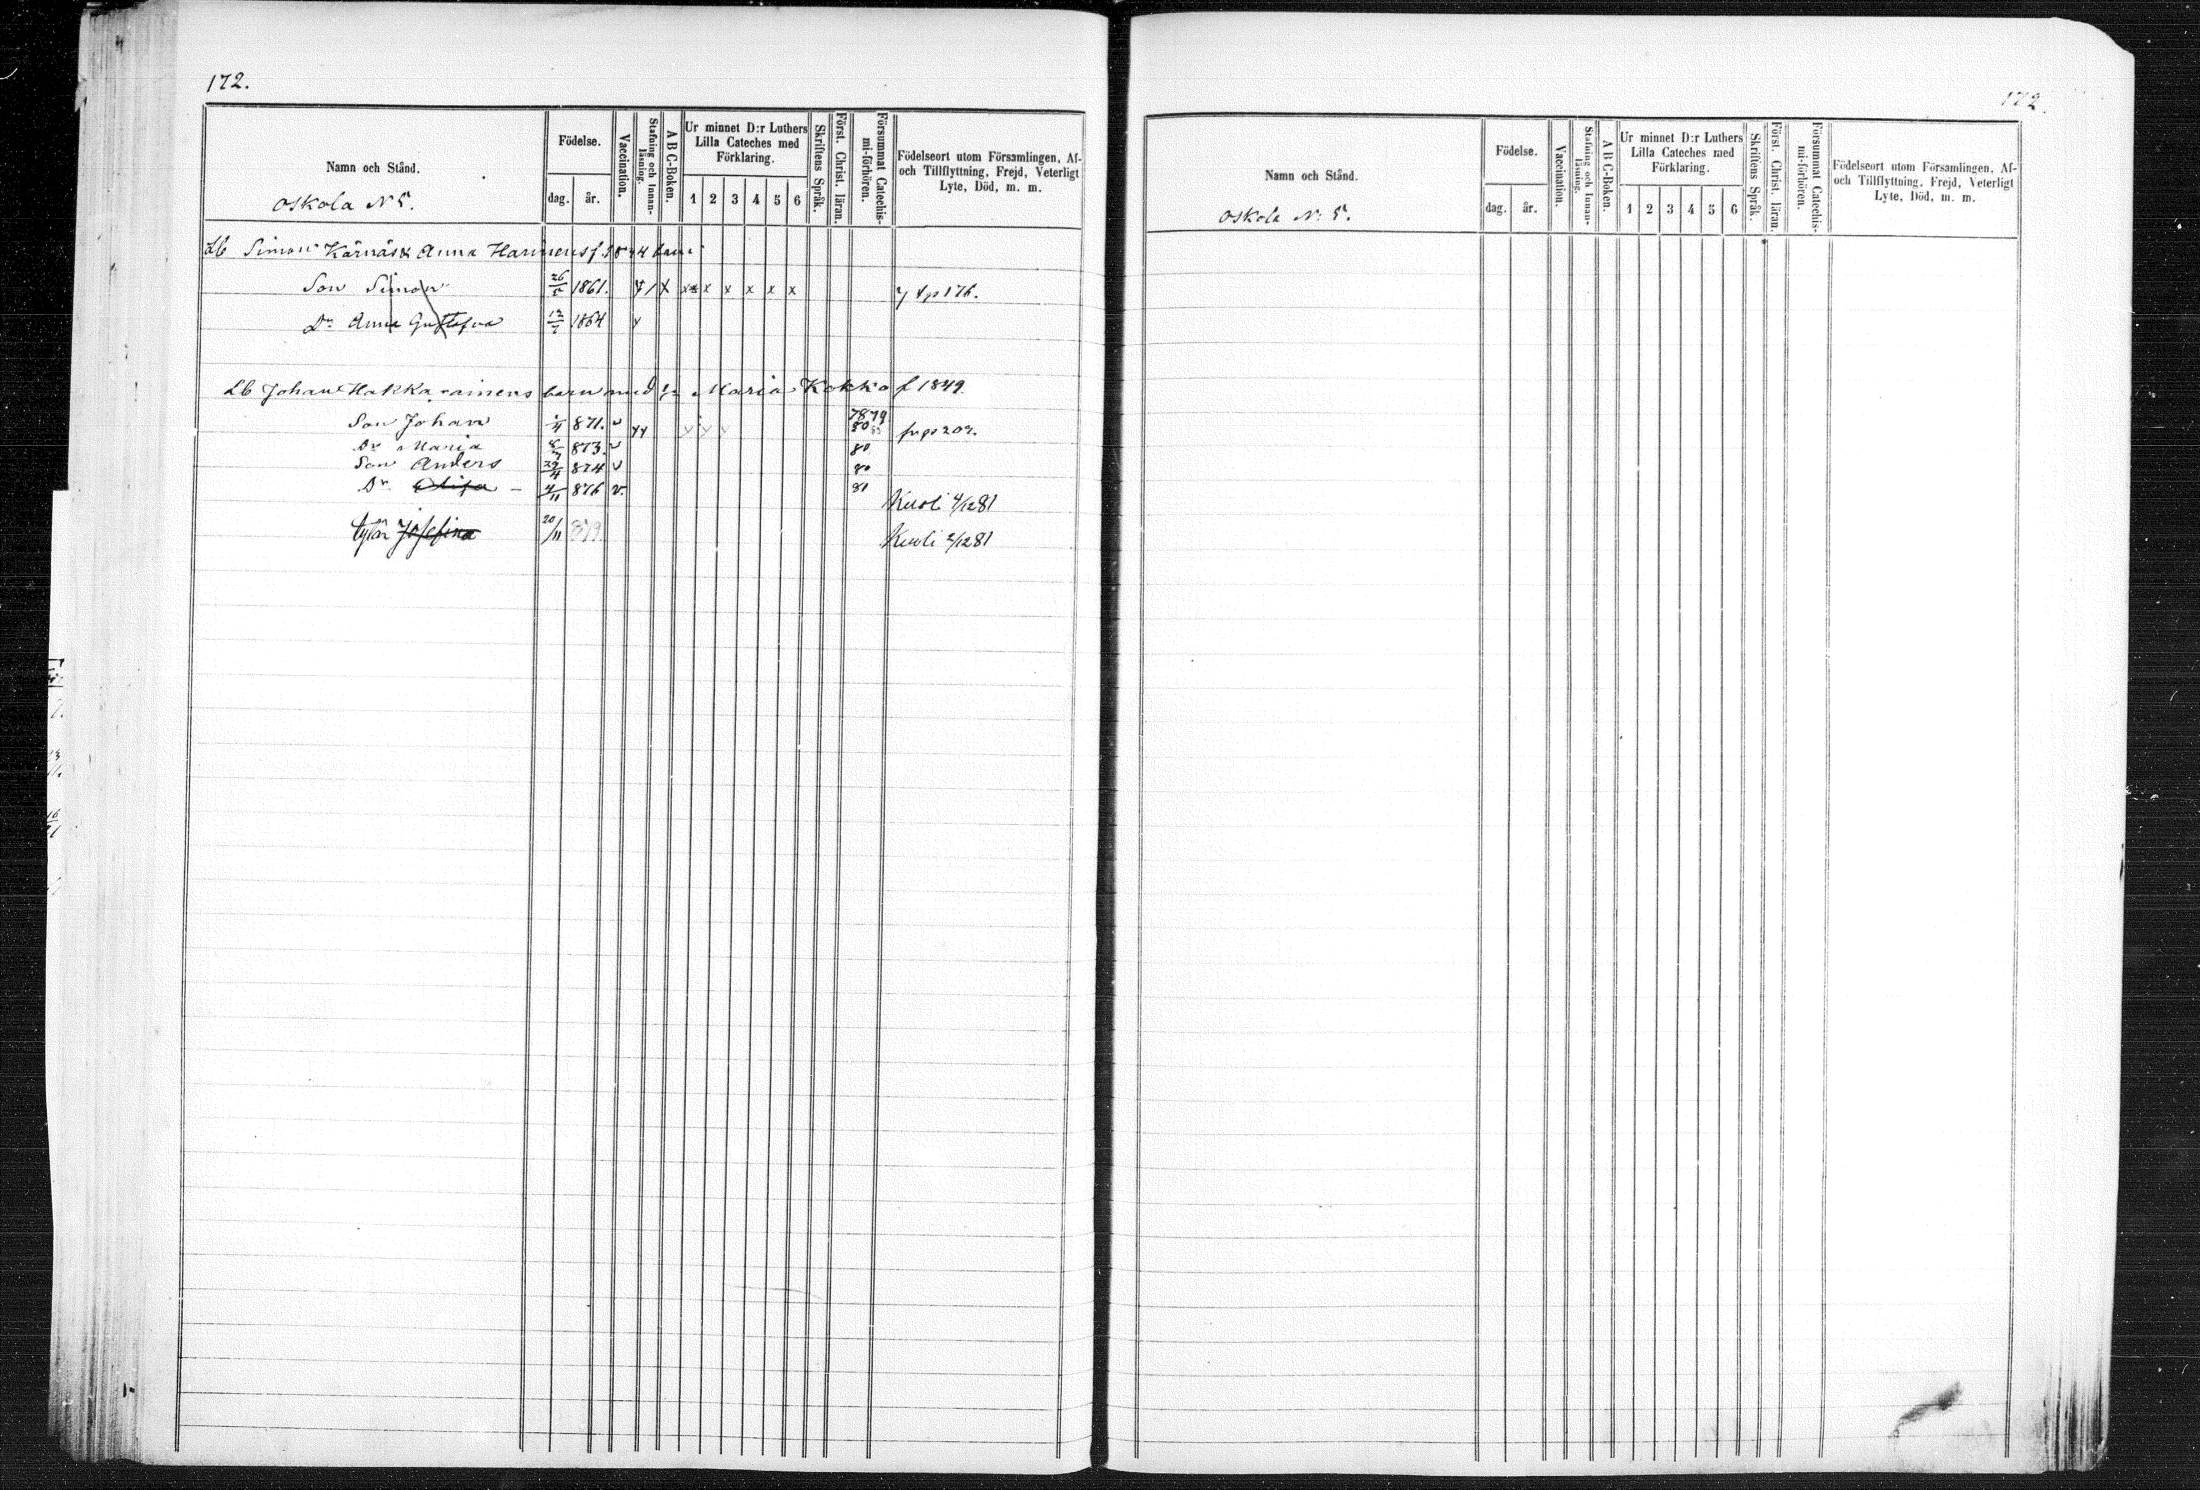 172.
Namn och Stånd.
Födelse.
dag. år.
Vaccination.
Stafning och Innan-läsning.
A B C-Boken.
Ur minnet D:r Luthers Lilla Cateches med Förklaring.
1 2 3 4 5 6
Skriftens Språk.
Först. Christ. läran.
Försummat Catechis-mi-förhören.
Födelseort utom Församlingen, Af- och Tillflyttning, Frejd, Veterligt Lyte, Död, m. m.
Oskola N 5.
Lb Simon Kärnäs & Anna f. 1844 barn
Son Simon 26/5 1861. x x x x x x p 176.
Dr Anna Gustafva 12/7 1864
Lb Johan Hakkarainens barn med Maria Kokko f 1849.
Son Johan 1/4 871. v 78 79 80 p 202.
Dr Maria 873. v 80
Son Anders 29/4 874 v 80
Dr 4/11 876 v. 81 Kuoli 4/12 81
tytär Josefina 20/11 879. Kuoli 2/12 81
172
Namn och Stånd.
Födelse.
dag. år.
Vaccination.
Stafning och Innan-läsning.
A B C-Boken.
Ur minnet D:r Luthers Lilla Cateches med Förklaring.
1 2 3 4 5 6
Skriftens Språk.
Först. Christ. läran.
Försummat Catechis-mi-förhören.
Födelseort utom Församlingen, Af- och Tillflyttning, Frejd, Veterligt Lyte, Död, m. m.
Oskola N: 5.